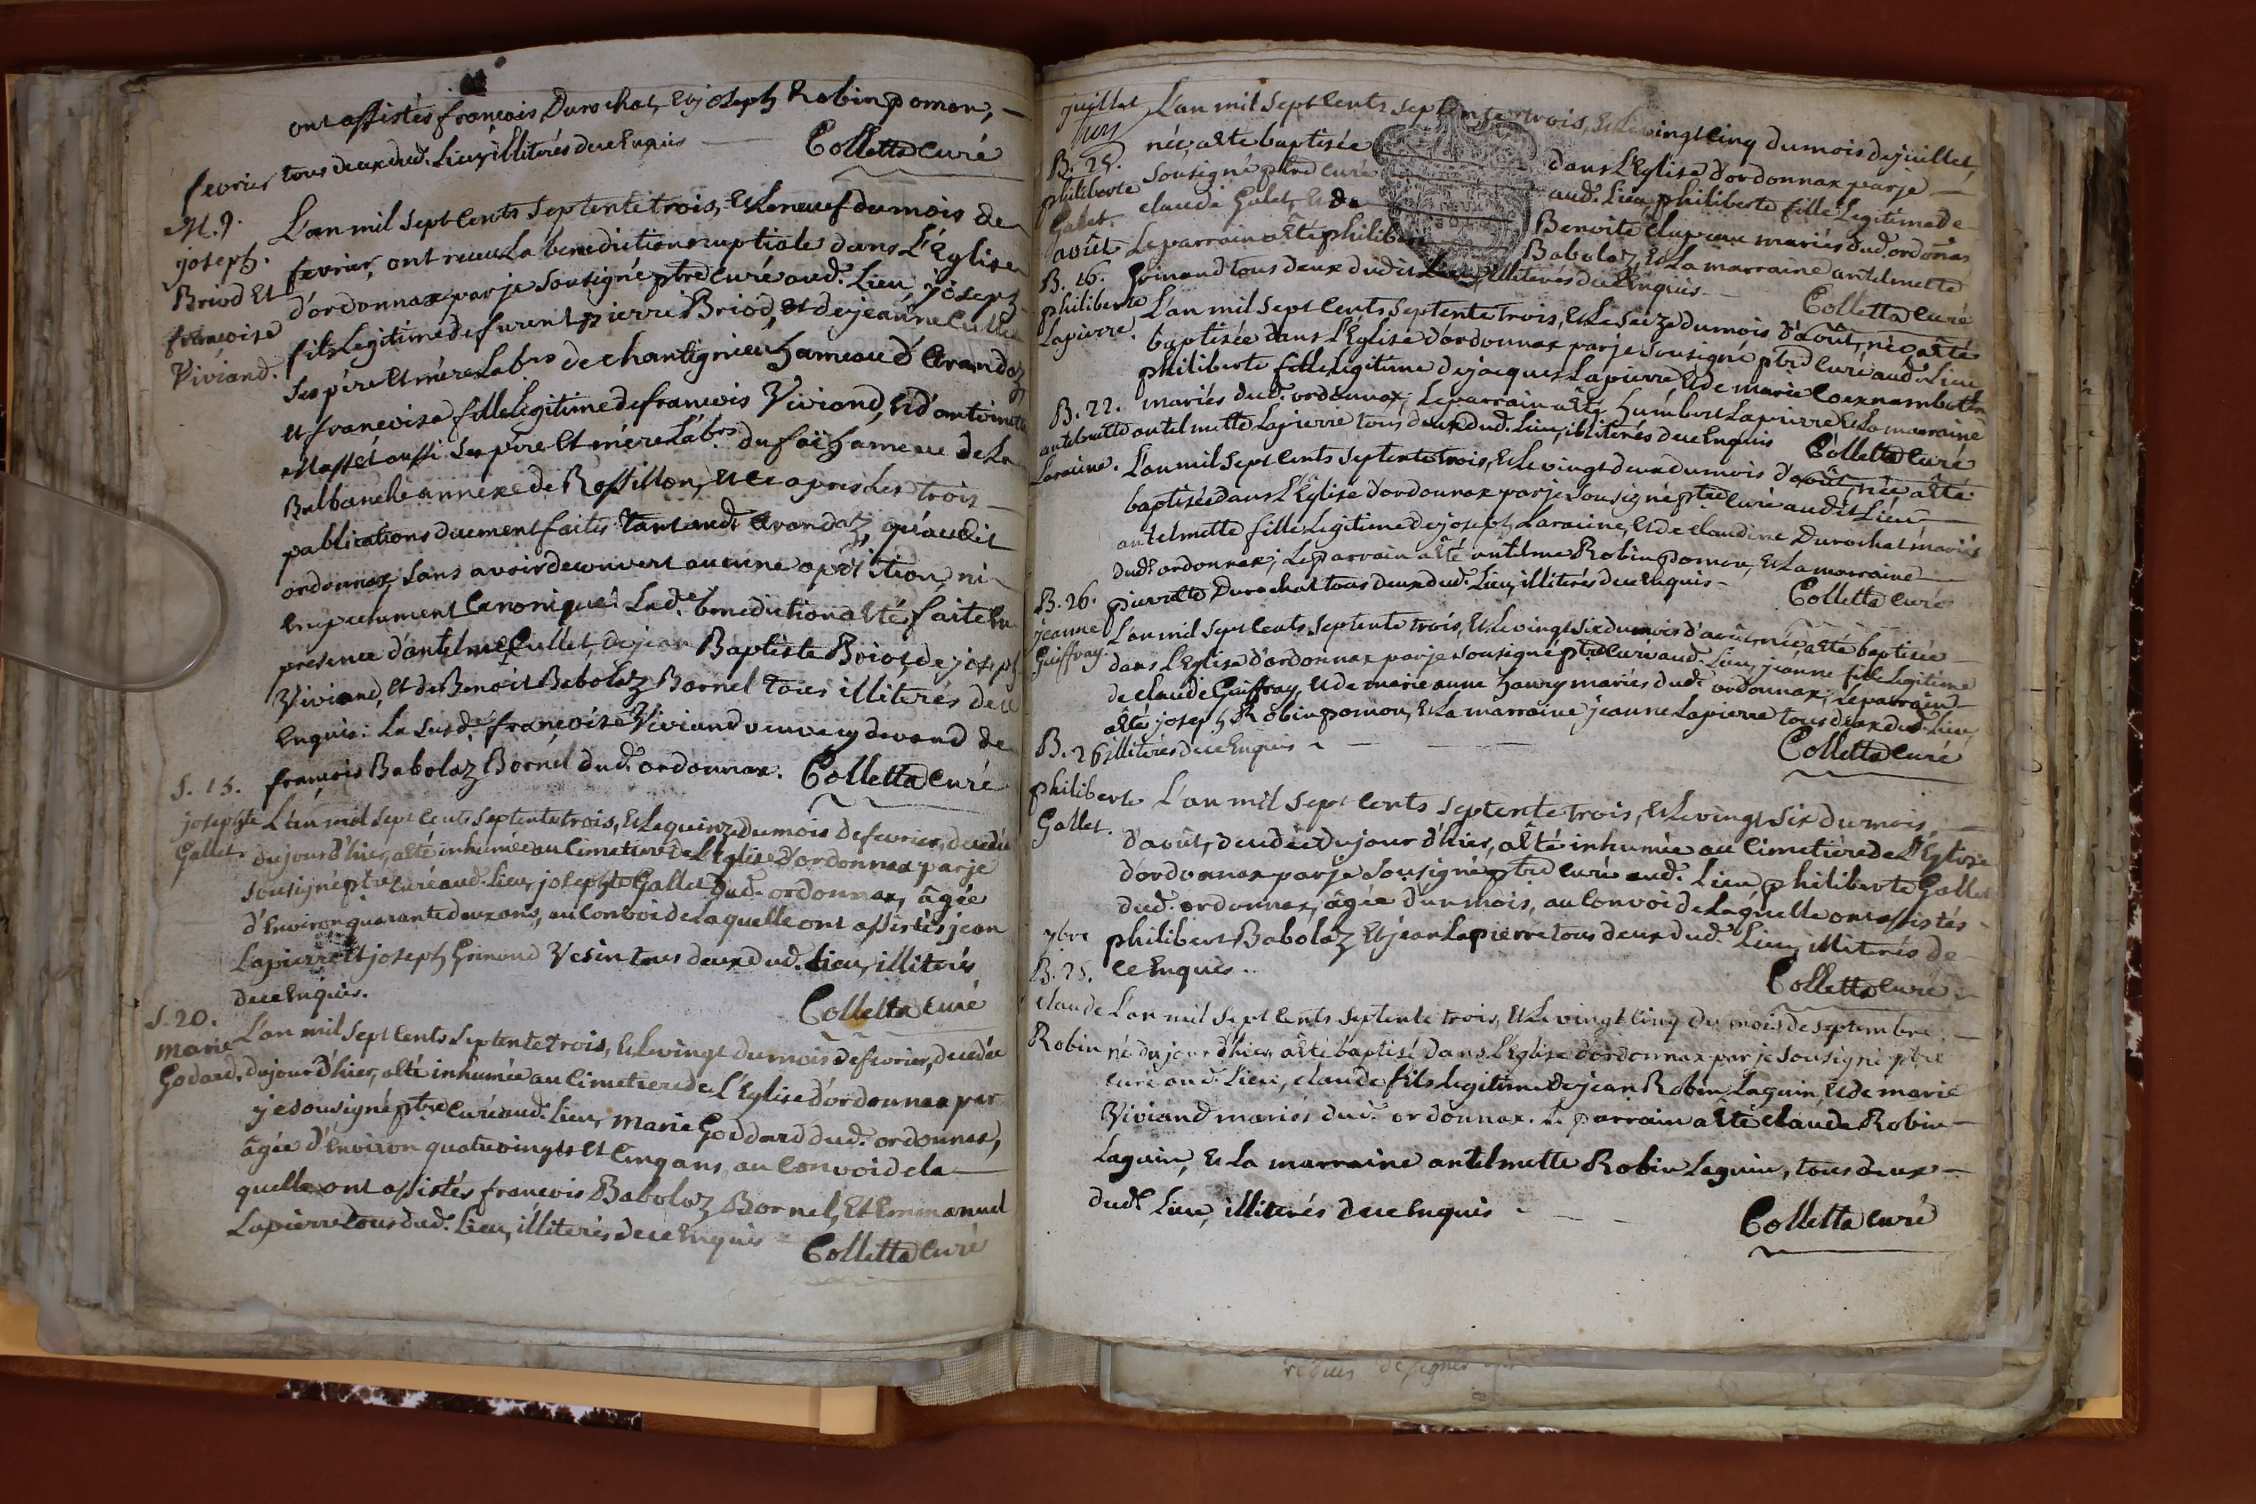 ont assistés françois Durochat, et joseph Robin pomon,
tous deux dud.t Lieu, illiterés de ce Enquis
Colletta Curé
fevrier
M. 9.
joseph.
Briod Et
françoise
Viviand.
L'an mil sept Cents septente trois, et Le neuf du mois de
fevrier, ont receu La benediction nuptiale dans L'Eglise
d'ordonnax par je sousigné ptre Curé aud.t Lieu, joseph
fils Legitime de furent pierre Briod, et de jeanne Cullet
ses père et mère Lab.rs de chantignieu hameau d'Arandaz
et françoise fille Legitime de françois Viviand, et d'antoinette
Masset aussi ses père et mère Lab.rs du faï hameau de La
Balbanche annexe de Rossillon, et ce apres Les trois
publications duement faites tant aud.t Arandaz, qu'audit
ordonnax, sans avoir decouvert aucune oposition, ni
Empechement Canonique: Lad.te benediction a eté faite En
presence d'antelme Cullet, de jean Baptiste Briod, de joseph
Viviand, et de Benoit Babolaz Bornel tous illiterés de ce
Enquis: La susd.te françoise Viviand veuve cy devand de
françois Babolaz Bornel dud.t ordonnax. Colletta Curé
S. 15.
josephte
Gallet.
L'an mil sept Cents septente trois, et Le quinze du mois de fevrier, decedée
du jour d'hier, a eté inhumée au Cimetiere de L'Eglise d'ordonnax par je
sousigné ptre Curé aud.t Lieu, josephte Gallet dud.t ordonnax, âgée
d'Environ quarante deux ans, au Convoi de Laquelle ont assistés jean
Lapierre Et joseph Grinand Vesin tous deux dud.t Lieu, illiterés
de ce Enquis.
Colletta Curé
S. 20.
Marie
Godard.
L'an mil sept Cents septente trois, et Le vingt du mois de fevrier, decedée
du jour d'hier, a eté inhumée au Cimetiere de L'Eglise d'ordonnax par
je sousigné ptre Curé aud.t Lieu, Marie Goddard dud.t ordonnax,
âgée d'Environ quatre vingts et Cinq ans, au Convoi de la
quelle ont assistés françois Babolaz Bornel, Et Emmanuel
Lapierre tous dud.t Lieu, illiterés de ce Enquis
Colletta Curé
juillet
B. 25.
philiberte
Galet.
L'an mil sept Cents septente trois, et Le vingt Cinq du mois de juillet,
née, a eté baptisée dans L'Eglise d'ordonnax par je
sousigné ptre Curé aud.t Lieu, philiberte fille Legitime de
claude Galet, et de Benoite Clapeau mariés dud.t ordonnax
Le parrain a eté philibert Babolaz, et La marraine antelmette
Grinand tous deux dudit Lieu, illiterés de ce Enquis.
Colletta Curé
août
B. 16.
philiberte
Lapierre.
L'an mil sept Cents septente trois, et Le seize du mois d'août, née, a eté
baptisée dans L'Eglise d'ordonnax par je sousigné ptre Curé aud.t Lieu
philiberte fille Legitime de jacques Lapierre et de marie
mariés dud.t ordonnax; Le parrain a eté humbert Lapierre, et La marraine
antelmette Lapierre tous deux dud.t Lieu, illiterés de ce Enquis Colletta Curé
B. 22.
antelmette
Laraine.
L'an mil sept Cents septente trois, et Le vingt deux du mois d'août, née a eté
baptisée dans L'Eglise d'ordonnax par je sousigné ptre Curé audit Lieu
antelmette fille Legitime de joseph Laraine, et de claudine Durochat mariés
dud.t ordonnax; Le parrain a eté antelme Robin pomon, et La marraine
pierrette Durochat tous deux dud.t Lieu, illiterés de ce Enquis
Colletta Curé
B. 26.
jeanne
Guiffray.
L'an mil sept Cents septente trois, et Le vingt six du mois d'août, née, a eté baptisée
dans L'Eglise d'ordonnax par je sousigné ptre Curé aud.t Lieu, jeanne fille Legitime
de claude Guiffray, et de marie anne mariés dud.t ordonnax; Le parrain
a eté joseph Robin pomon, et La marraine jeanne Lapierre tous deux dud.t Lieu,
illiterés de ce Enquis
Colletta Curé
B. 26
philiberte
Gallet.
L'an mil sept Cents septente trois, et Le vingt six du mois
d'août, decedée du jour d'hier, a eté inhumée au Cimetiere de L'Eglise
d'ordonnax par je sousigné ptre Curé aud.t Lieu philiberte Gallet
dud.t ordonnax, âgée d'un mois, au Convoi de Laquelle ont assistés
philibert Babolaz Et jean Lapierre tous deux dud.t Lieu, illiterés de
ce Enquis.
Colletta Curé
7bre
B. 25.
claude
Robin
L'an mil sept Cents septente trois, et Le vingt Cinq du mois de septembre,
né du jour d'hier, a eté baptisé dans L'Eglise d'ordonnax par je sousigné ptre
Curé aud.t Lieu, claude fils legitime de jean Robin Laguin, et de marie
Viviand mariés dud.t ordonnax. Le parrain a eté claude Robin
Laguin, et La marraine antelmette Robin Laguin, tous deux
dud.t Lieu, illiterés de ce Enquis
Colletta Curé